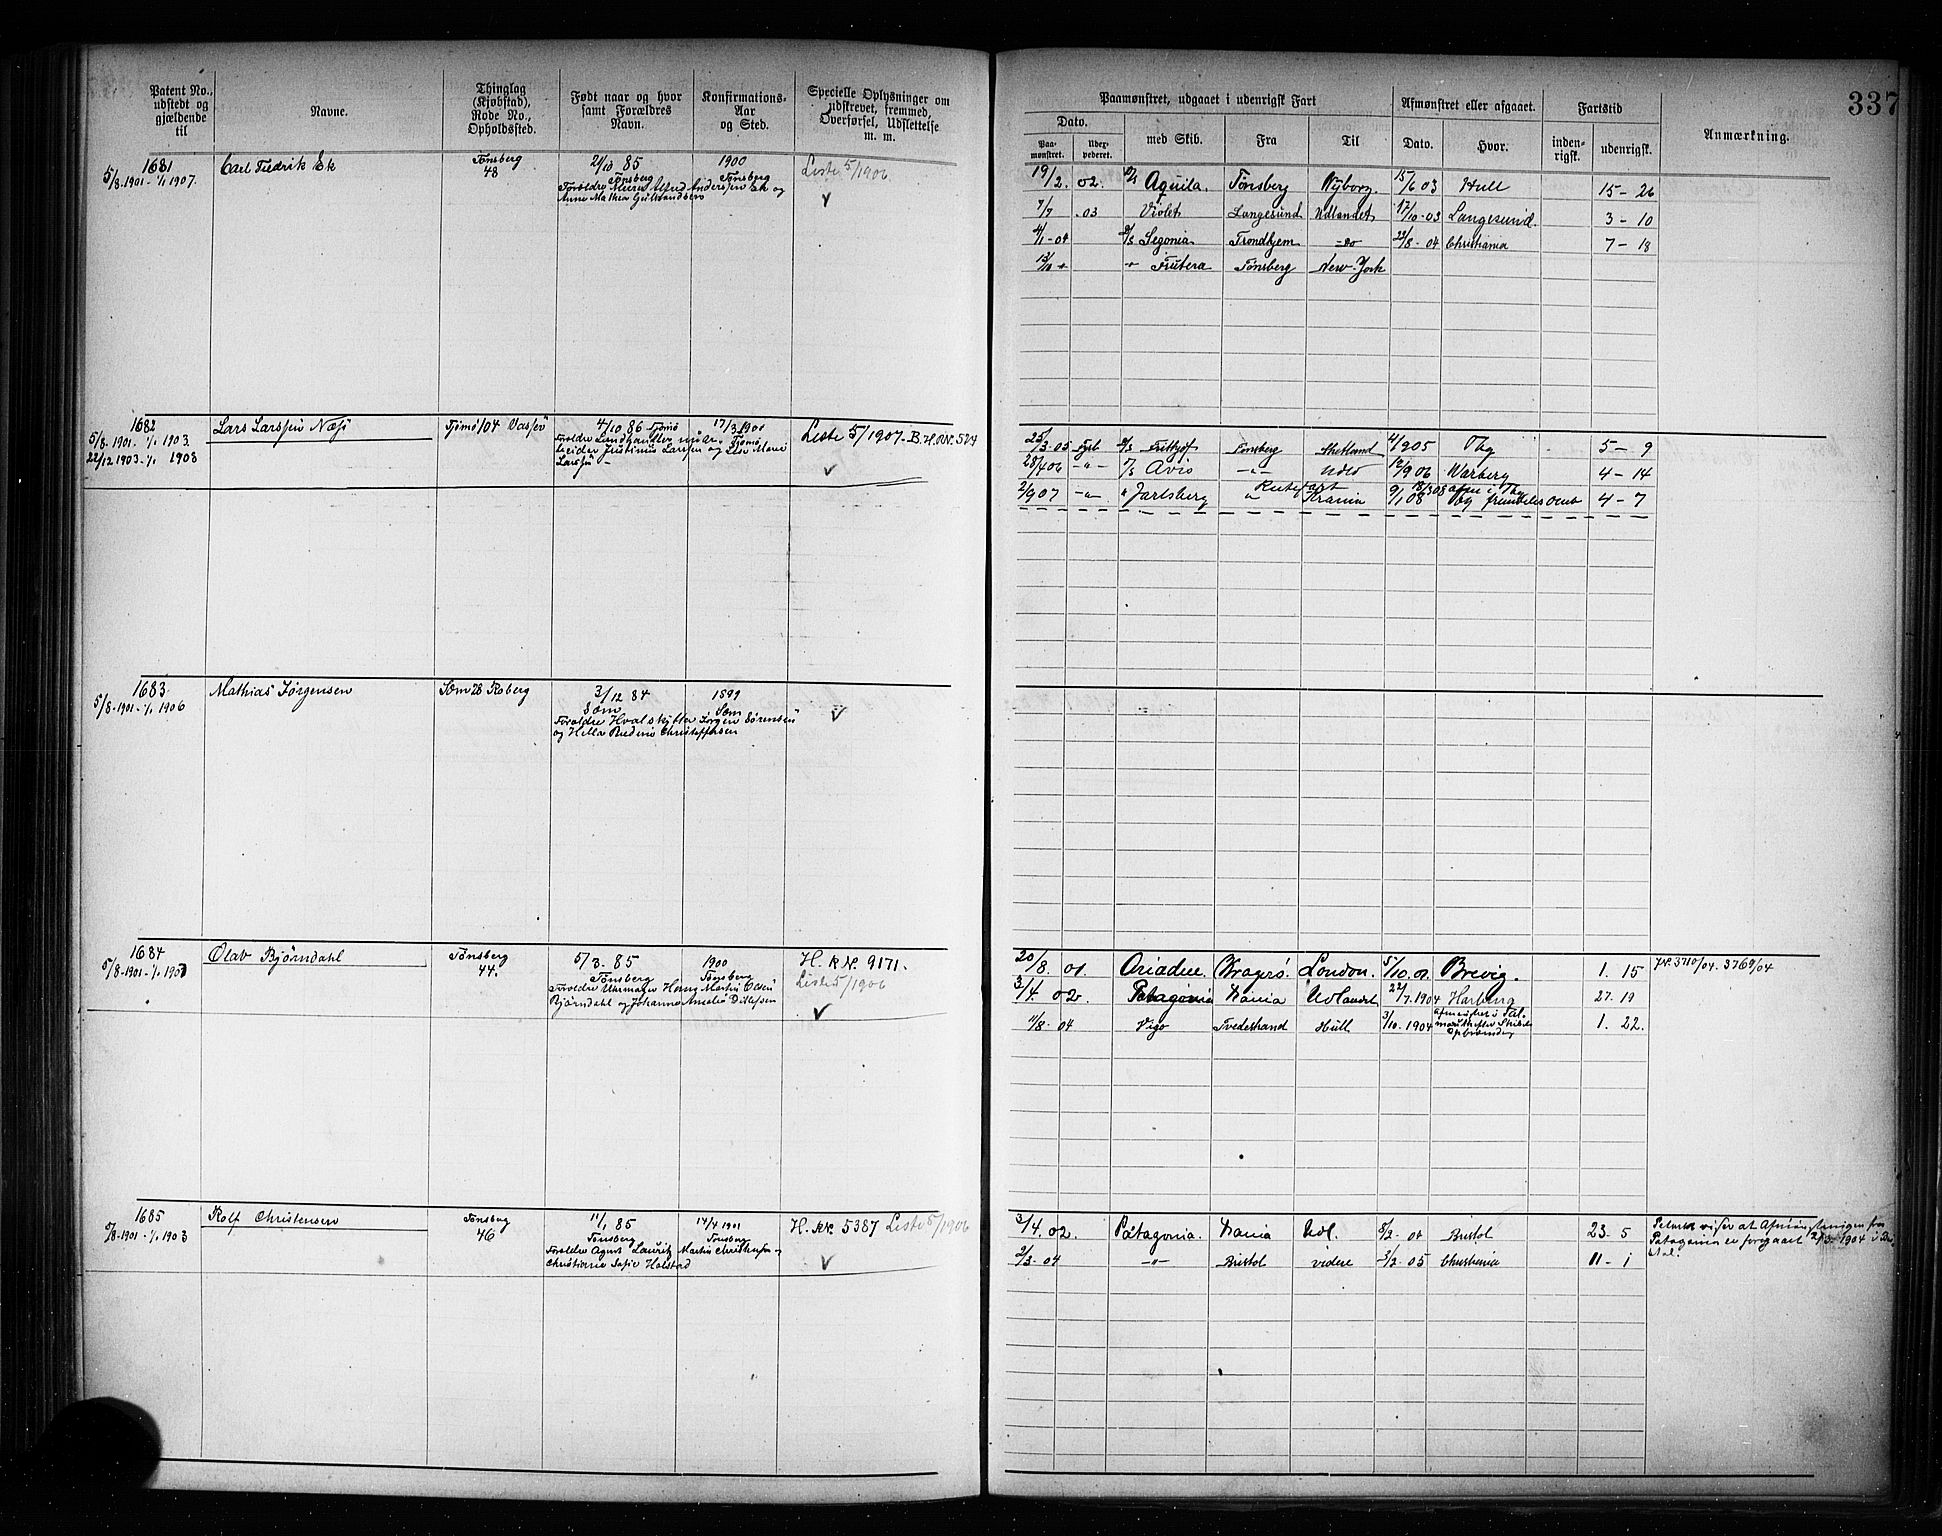 337
Patent No., udstedt og gjældende til
Navne.
Thinglag (Kjøbstad), Rode No., Opholdssted.
Født naar og hvor samt Forældres Navn.
Konfirmations-Aar og Sted.
Specielle Oplysninger om udskrevet, fremmed, Overførsel, Udslettelse m. m.
Paamønstret, udgaaet i udenrigsk Fart
Afmønstret eller afgaaet.
Fartstid
Anmærkning.
Dato.
med Skib.
Fra
Til
Dato.
Hvor.
inden-rigsk.
udenrigsk.
Paa-mønstret.
1681
5/8-1901-1/1 1907.
Carl Fredrik Ek
Tønsberg
48
85
Tønsberg
1900
Tønsberg
Forældre Murer Alfred Andersen Ek og
Anne Mathea Gulbrandsen
Liste 5/1906
19/2. 02. Aquila. Tønsberg Nyborg. 15/6 03 Hull 15-26
7/7 .03 Violet Langesund Udlandet 17/10-03 Langesund. 3-10
Segonia Trondhjem -do- 22/8-04 Christiania 7-18
Frutera Tønsberg New-York
1682
5/8-1901-1/1 1903
22/12 1903-1/1 1908
Lars Larssen Næss
Tjømø 104
4/10 86 Tjømø
17/3 1901
Tjømø
Justinus Larssen og Lise Marie
Larssen
Liste 5/1907-B.H.
25/3-05 Fritjof Tønsberg Shetland 4/9 05 Tbg 5-9
28/4 06 Avio Udld 12/9 06 Warberg 4-14
2/9 07 Jarlsberg Rutefart 9/1 08 4-7
1683
5/8-1901-1/1 1906
Mathias Jørgensen
Sæm 28 Roberg
3/12 84
Sæm
1899
Sæm
Forældre Hvalskytter Jørgen Sørensen
og Christoffersen
1684
5/8-1901-1/1-1907
Olav Bjørndahl
Tønsberg
44.
5/3-85
Tønsberg
1900
Tønsberg
Forældre Urmager Hans Martin Olsen
Bjørndahl og Johanne Amalie Ditlefsen
H. R. № 9171.
Liste 5/1906
20/8. 01. Ariadne Kragerø London. 5/10.01. Brevig. 1. 15
J№ 3710/04. 3769/04
3/4. 02. Patagonia Kania Udlandet 22/7.1904 Harburg 27. 19
11/8-04 Vigo Tvedestrand Hull 3/10.1904 1. 22.
1685
5/8-1901-1/1 1903
Rolf Christensen
Tønsberg
46
11/1 85
Tønsberg
14/4 1901
Tønsberg
Forældre Agent Lauritz Martin Christensen og
Christiane Sofie Halstad
H. R№ 5387 Liste 5/1906
3/4. 02. Patagonia. Kania Udl. 2-04 Bristol 23-5
viser at Afmønstringen fra
Patagonia er foregaaet 2/3-1904
2/3-04 -"- Bristol videre 3/2-05 Christiania 11-1